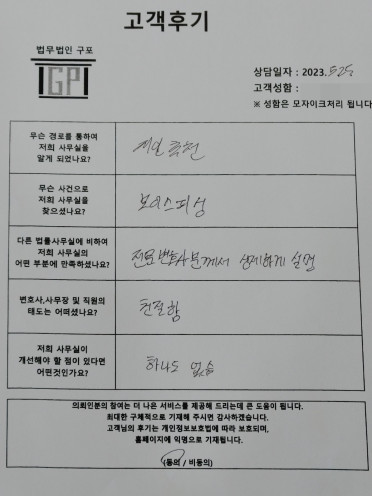 고객후기
법무법인 구포
GP
상담일자 : 2023. 5.25
고객성함 :
※ 성함은 모자이크처리 됩니다
무슨 경로를 통하여
저희 사무실을
알게 되었나요?
지인 추천
무슨 사건으로
저희 사무실을
찾으셨나요?
보이스피싱
다른 법률사무실에 비하여
저희 사무실의
어떤 부분에 만족하셨나요?
전문변호사분께서 상세하게 설명
변호사,사무장 및 직원의
태도는 어떠셨나요?
친절함
저희 사무실이
개선해야 할 점이 있다면
어떤것인가요?
하나도 없음
의뢰인분의 참여는 더 나은 서비스를 제공해 드리는데 큰 도움이 됩니다.
최대한 구체적으로 기재해 주시면 감사하겠습니다.
고객님의 후기는 개인정보보호법에 따라 보호되며,
홈페이지에 익명으로 기재됩니다.
(동의 / 비동의)